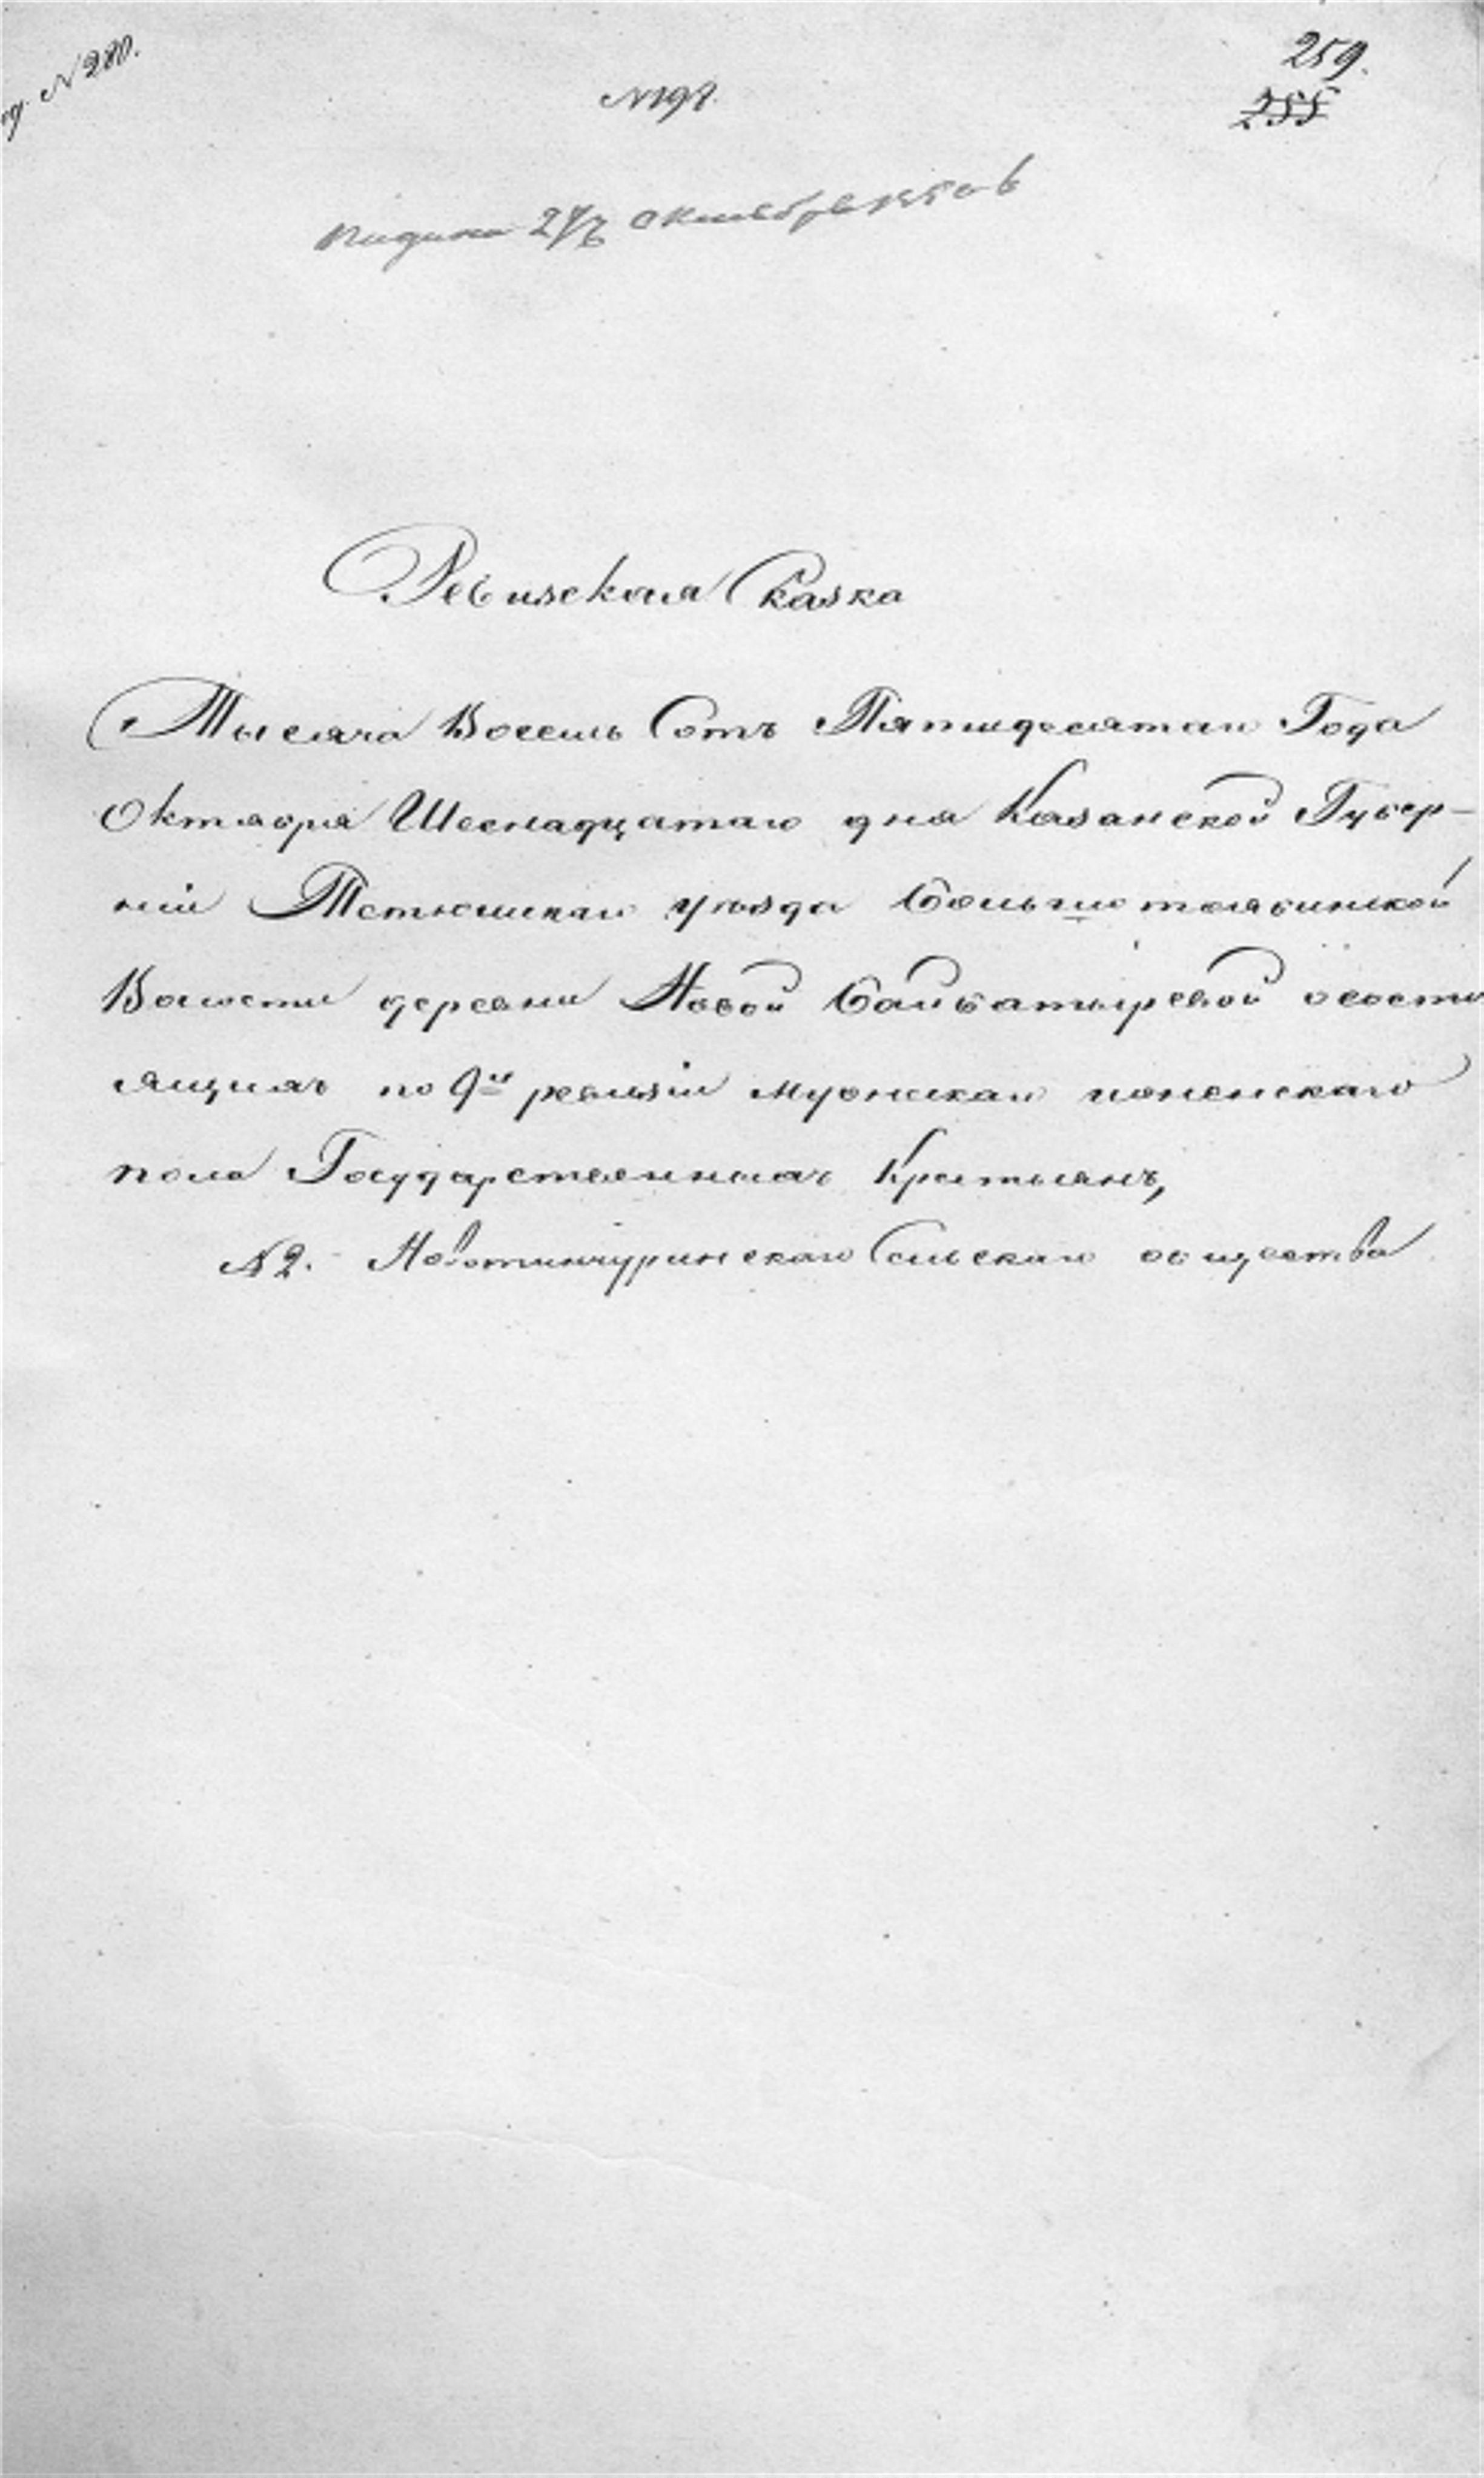 N 280.
259.
255
N 191.
Подана 27 Октября 1850 г
Ревизская Сказка
Тысяча Восемь Сотъ Пятидесятаго Года
Октября Шеснадцатаго дня Казанской Губер-
ніи Тетюшскаго уѣзда Большетоябинской
Волости деревни Новой Байбатыревой о состо
ящихъ по 9й ревизіи мужскаго и женскаго
пола Государственныхъ Крестьянъ,
N 2. Новотинчуринскаго Сельскаго общества